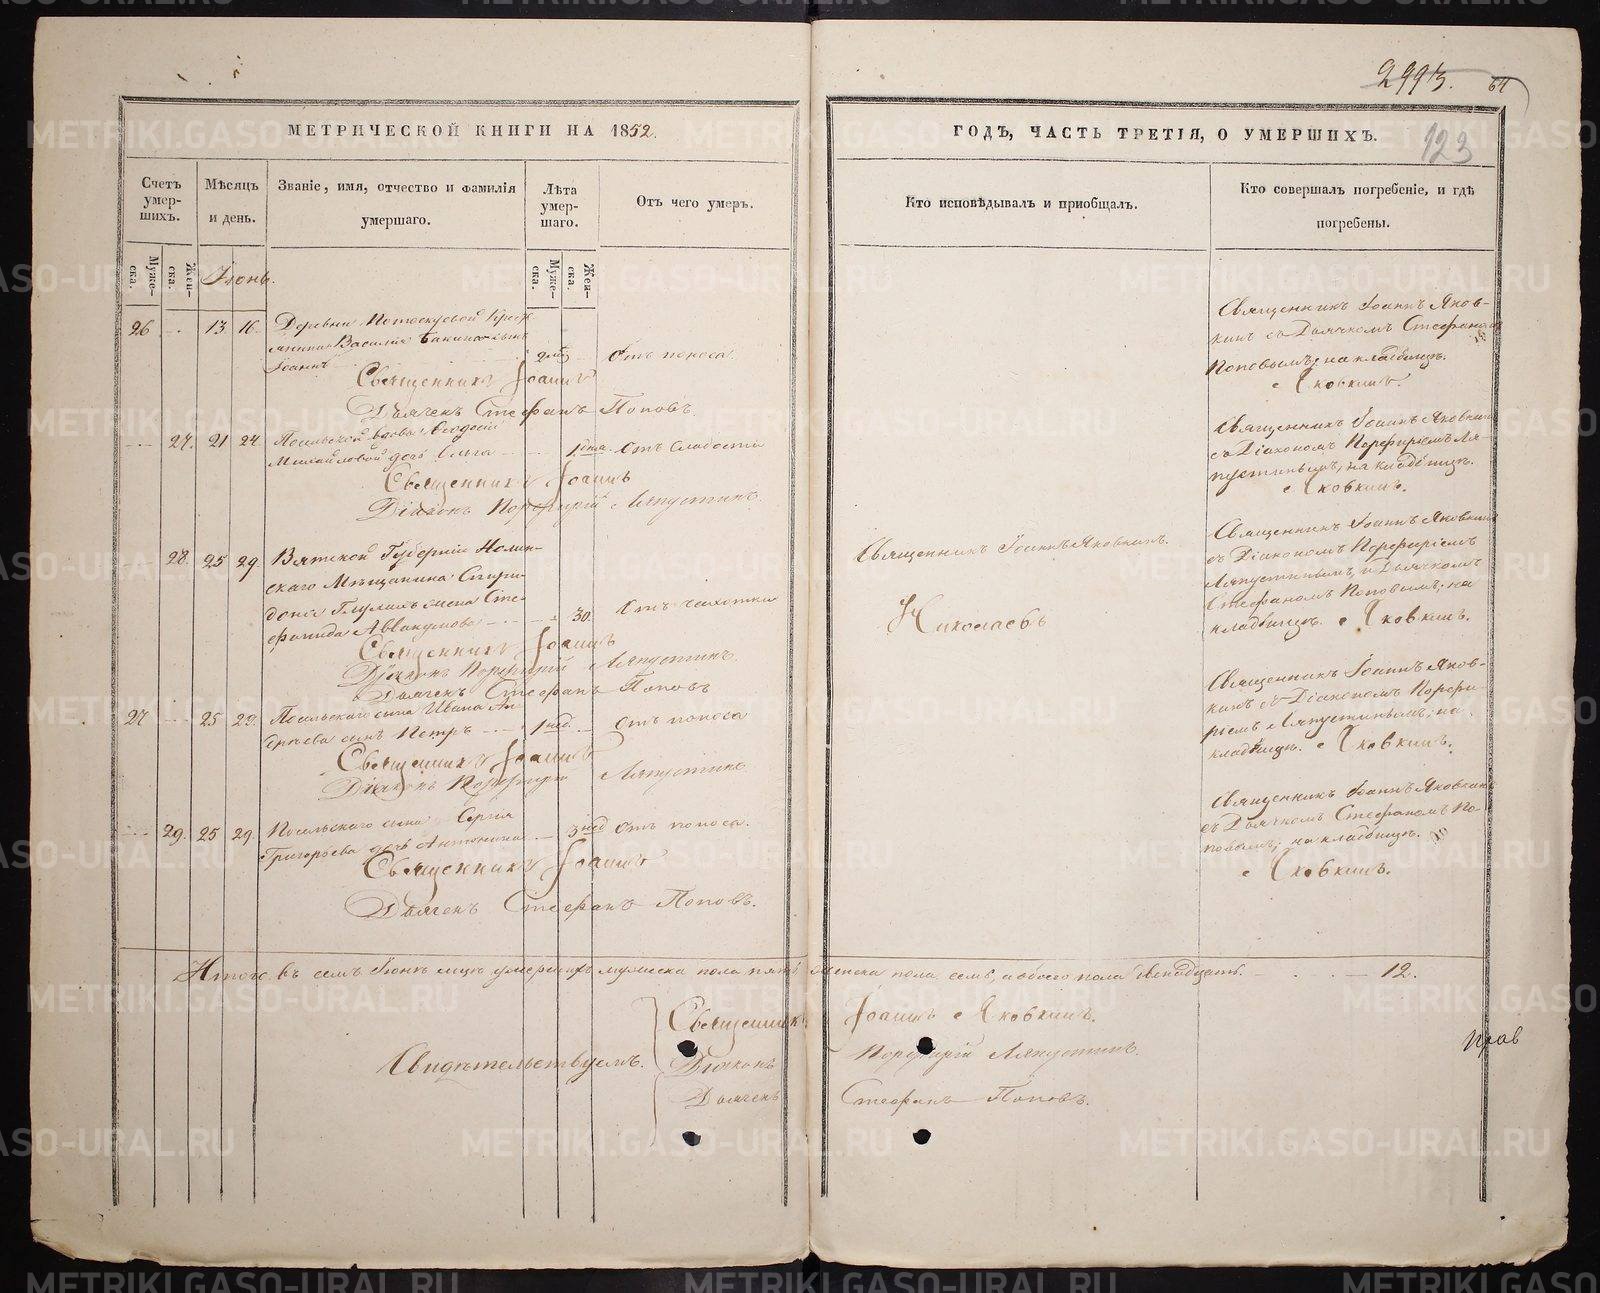 2993.
64
123
МЕТРИЧЕСКОЙ КНИГИ НА 1852.
ГОДЪ, ЧАСТЬ ТРЕТІЯ, О УМЕРШИХЪ.
Счетъ умер-шихъ.
Муже-ска.
Жен-ска.
Мѣсяцъ и день.
Званіе, имя, отчество и фамилія умершаго.
Лѣта умер-шаго.
Муже-ска.
Жен-ска.
Отъ чего умеръ.
Кто исповѣдывалъ и приобщалъ.
Кто совершалъ погребеніе, и гдѣ погребены.
Іюнь.
26 13 16 Деревни Кресть-
янина Василія сынъ
Іоаннъ Отъ поноса.
Священникъ Іоаннъ
Дьячекъ Стефанъ Поповъ.
Священникъ Іоаннъ Яков-
кинъ съ Дьячкомъ Стефаномъ
Поповымъ, на кладбищѣ.
Яковкинъ.
27. 21 24 вдовы Феодосіи
Михайловой дочь Ольга 1 дня. Отъ слабости
Священникъ Іоаннъ
Діаконъ Порфирій Ляпустинъ.
Священникъ Іоаннъ Яковкинъ
съ Діакономъ Порфиріемъ Ля-
пустинымъ, на кладбищѣ.
Яковкинъ.
28. 25 29 Вятской Губерніи Нолин-
скаго Мѣщанина Спири-
дона жена Сте-
фанида Аввакумова 30. Отъ чахотки
Священникъ Іоаннъ
Діаконъ Порфирій Ляпустинъ.
Дьячекъ Стефанъ Поповъ
Священникъ Іоаннъ Яковкинъ.
Николаевъ
Священникъ Іоаннъ Яковкинъ
съ Діакономъ Порфиріемъ
Ляпустинымъ, и Дьячкомъ
Стефаномъ Поповымъ, на
кладбищѣ. Яковкинъ.
27 25 29. Посельскаго сына Ивана Ан-
дреева сынъ Петръ 1 нед. Отъ поноса
Священникъ Іоаннъ
Діаконъ Порфирій Ляпустинъ
Священникъ Іоаннъ Яков-
кинъ съ Діакономъ Порфи-
ріемъ Ляпустинымъ, на
кладбищѣ. Яковкинъ.
29. 25 29. Посельскаго сына Сергія
Григорьева дочь Антонина 3 нед Отъ поноса.
Священникъ Іоаннъ
Дьячекъ Стефанъ Поповъ.
Священникъ Іоаннъ Яковкинъ
съ Дьячкомъ Стефаномъ По-
повымъ, на кладбищѣ.
Яковкинъ.
Итого въ семъ Іюнѣ мцѣ умершихъ мужеска пола пять женска пола семь, а обоего пола двенадцать. 12.
Свидѣтельствуемъ.
Священникъ Іоаннъ Яковкинъ.
Діаконъ Порфирій Ляпустинъ.
Дьячекъ Стефанъ Поповъ.
METRIKI.GASO-URAL.RU